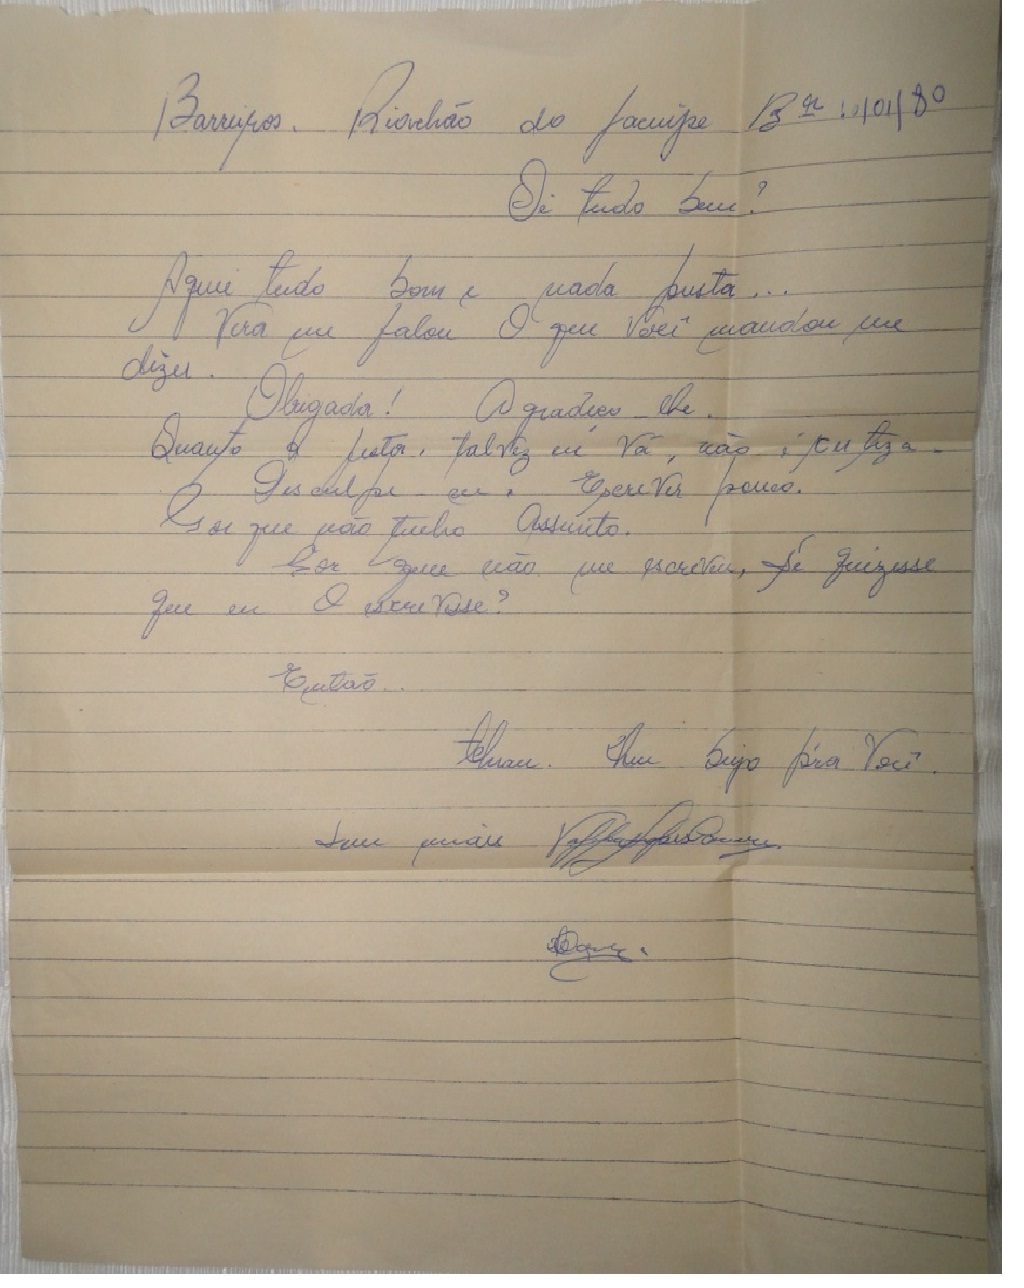 Barreiros. Riachão do Jacuípe Ba 11/01/80
Oi tudo bem?
Aqui tudo bom e nada presta...
Vera me falou O que Você mandou me
dizer.
Obrigada! Agradeço-lhe.
Quanto a festa. talvez eu Vá, não é certeza.
Desculpe eu. Escrever pouco.
Por que não tenho Assunto.
Por que não me escreveu, Se quizesse
que eu O escrevesse?
Então...
tchau. Um beijo p'ra Você.